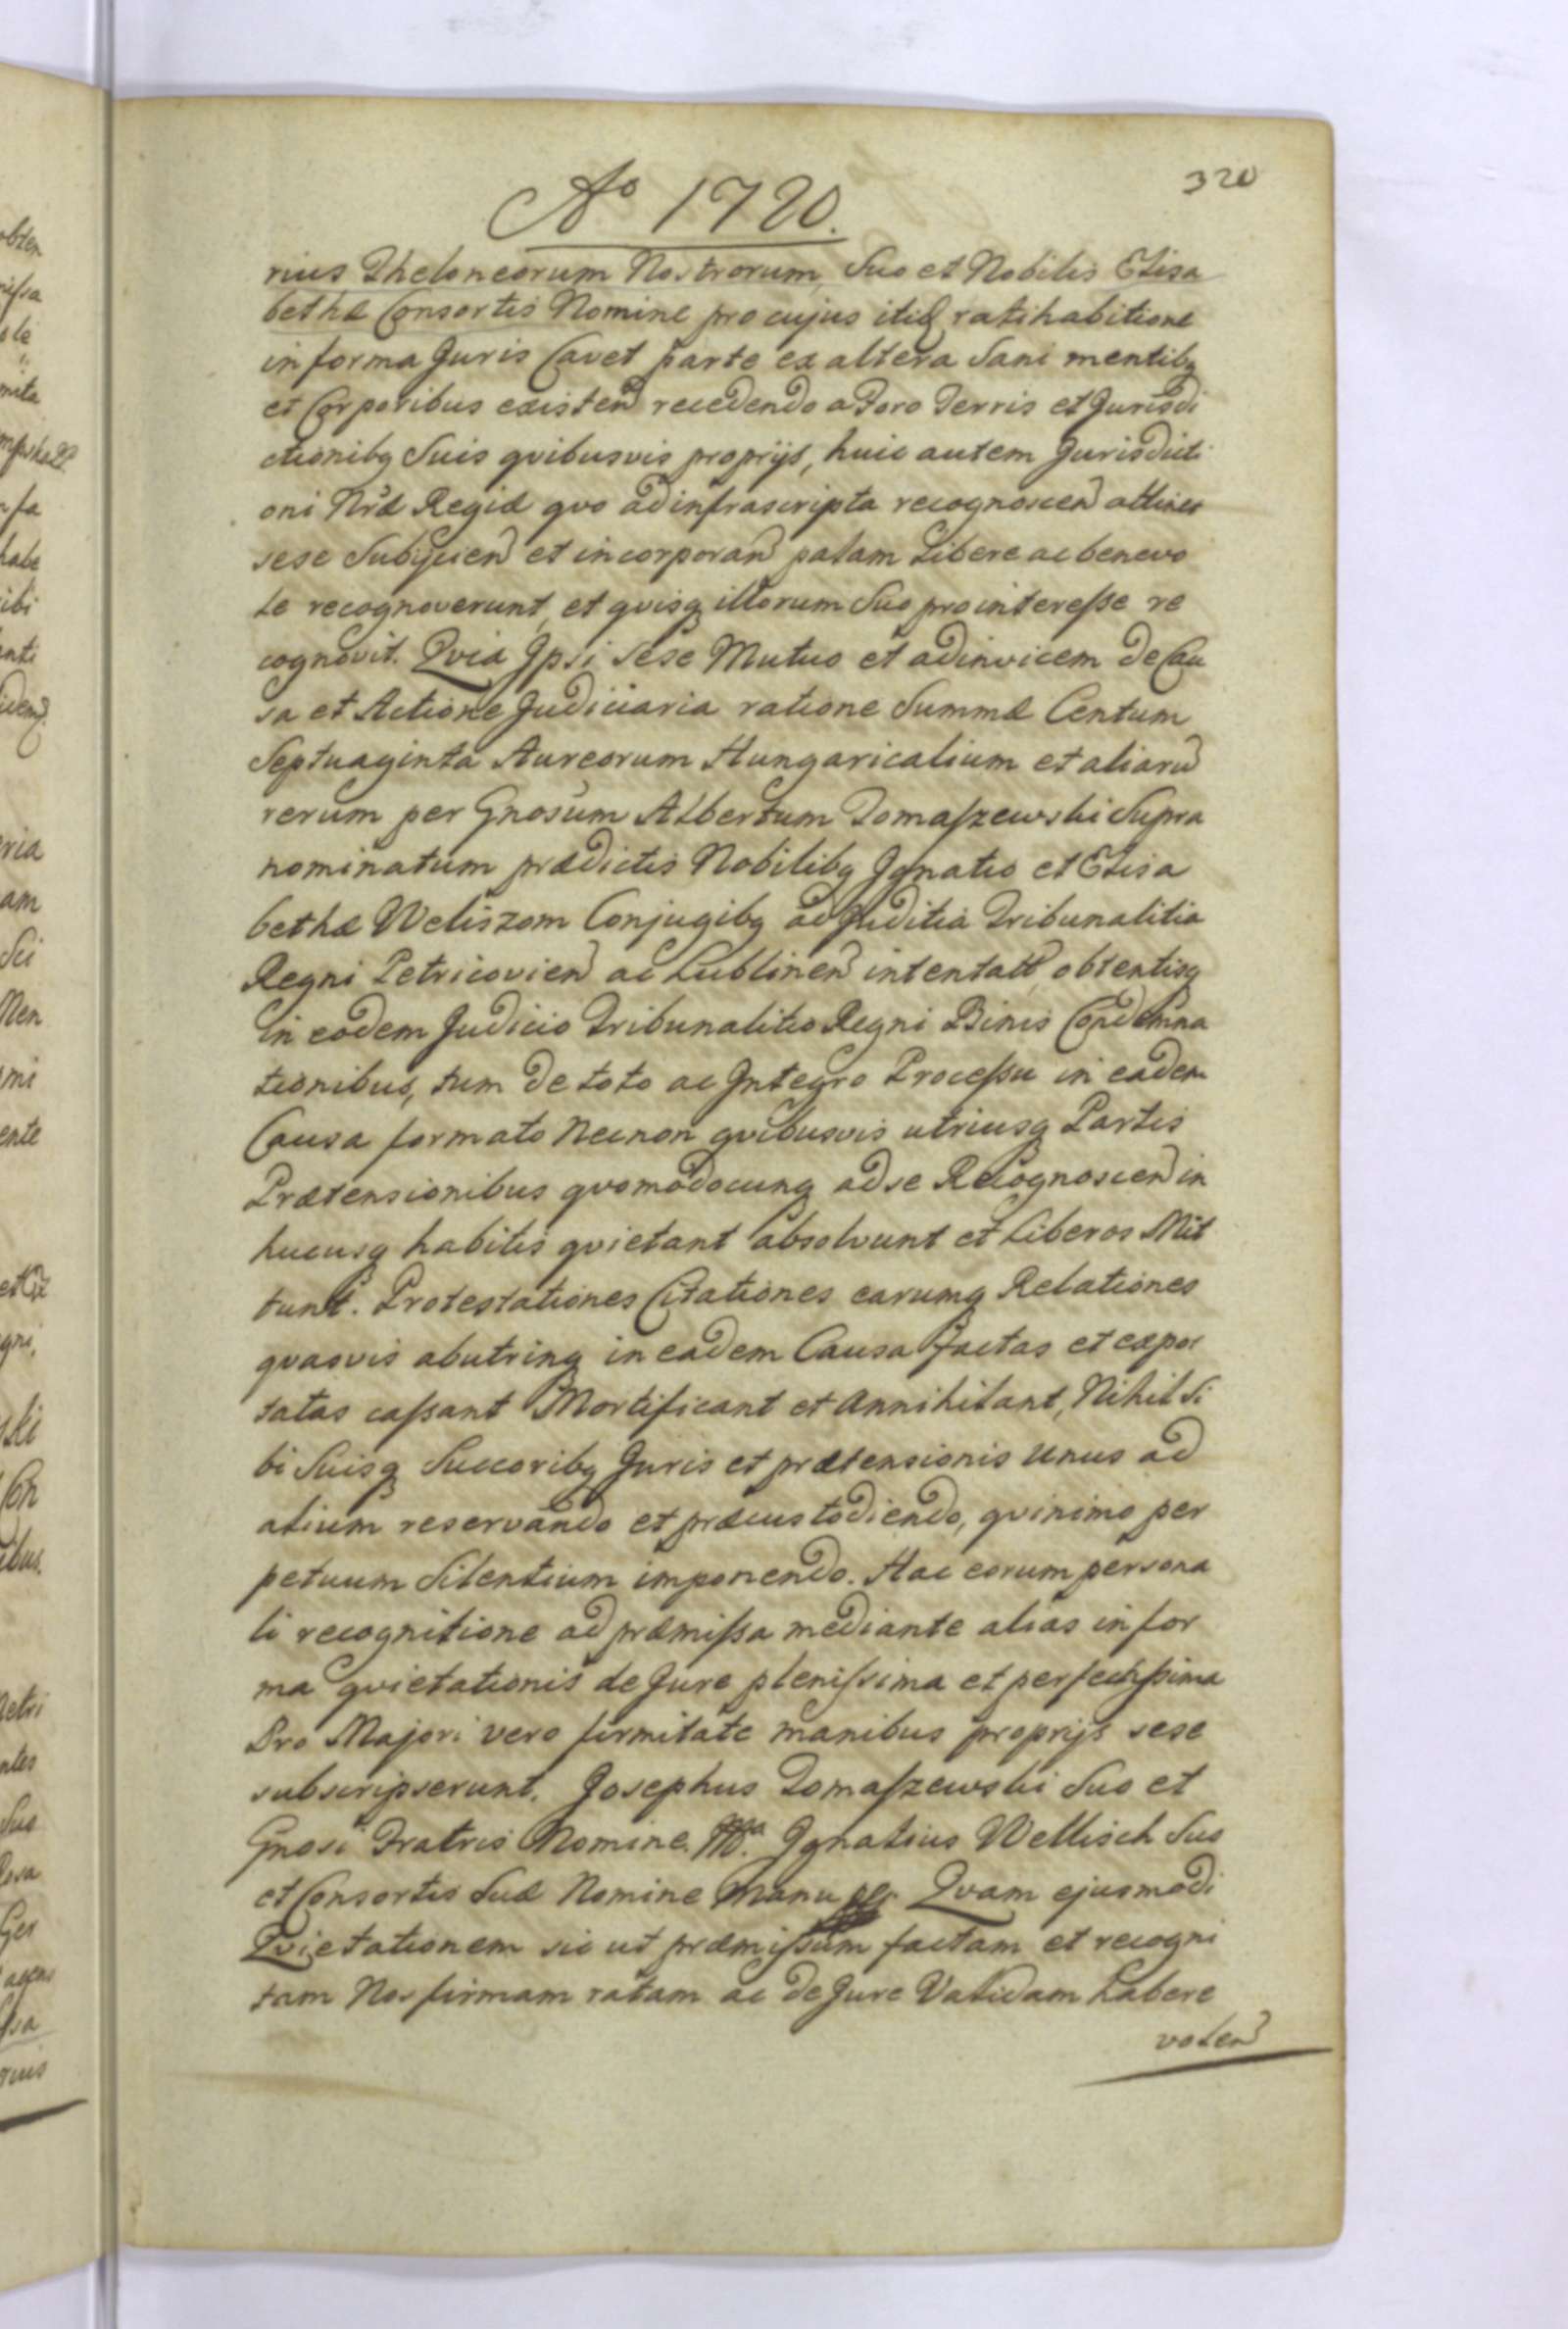 320
Ao 1720.
rius Theloneorum Nostrorum, Suo et Nobilis Elisa
bethæ Consortis Nomine pro cujus itid ratihabitione
in forma Juris Cavet parte ex altera Sani mentibq
et Corporibus existen recedendo a Foro Terris et Jurisdi
ctionibq Suis qvibusvis proprijs, huic autem Jurisdicti
oni Nræ Regiæ qvo ad infrascripta recognoscen attinet
sese Subijcien et incorporan palam Libere ac benevo
le recognoverunt, et qvisq illorum Suo pro interesse re
cognovit. Qvia Ipsi Sese Mutuo et adinvicem de Cau
sa et Actione Judiciaria ratione Summæ Centum
Septuaginta Aureorum Hungaricalium et aliaru
rerum per Gnosum Albertum Domaszewski Supra
nominatum prædictis Nobilibq Ignatio et Elisa
bethæ Weliszom Conjugibq ad Juditia Tribunalitia
Regni Petricovien ac Lublinen intentatt, obtentisq
in eodem Judicio Tribunalitio Regni Binis Condemna
tionibus, tum de toto ac Integro Processu in eadem
Causa formato Necnon qvibusvis utriusq Partis
Prætensionibus qvomodocunq ad se Recognoscen in
hucusq habitis qvietant absolvunt et Liberos Mit
tunt. Protestationes Citationes earumq Relationes
qvasvis abutrinq in eadem Causa factas et expor
tatas cassant Mortificant et Annihilant, Nihil Si
bi Suisq Succoribq Juris et prætensionis unus ad
alium reservando et præcustodiendo, qvinimo per
petuum Silentium imponendo. Hac eorum persona
li recognitione ad præmissa mediante alias in for
ma qvietationis de Jure plenissima et perfectissima
Pro Majori vero firmitate manibus proprijs sese
subscripserunt. Josephus Domaszewski Suo et
Gnosi Fratris Nomine. Ignatius Wellisch Suo
et Consortis Suæ Nomine Manu Qvam ejusmodi
Qvietationem sic ut præmissum factam et recogni
tam Nos firmam ratam ac de Jure Validam habere
volen